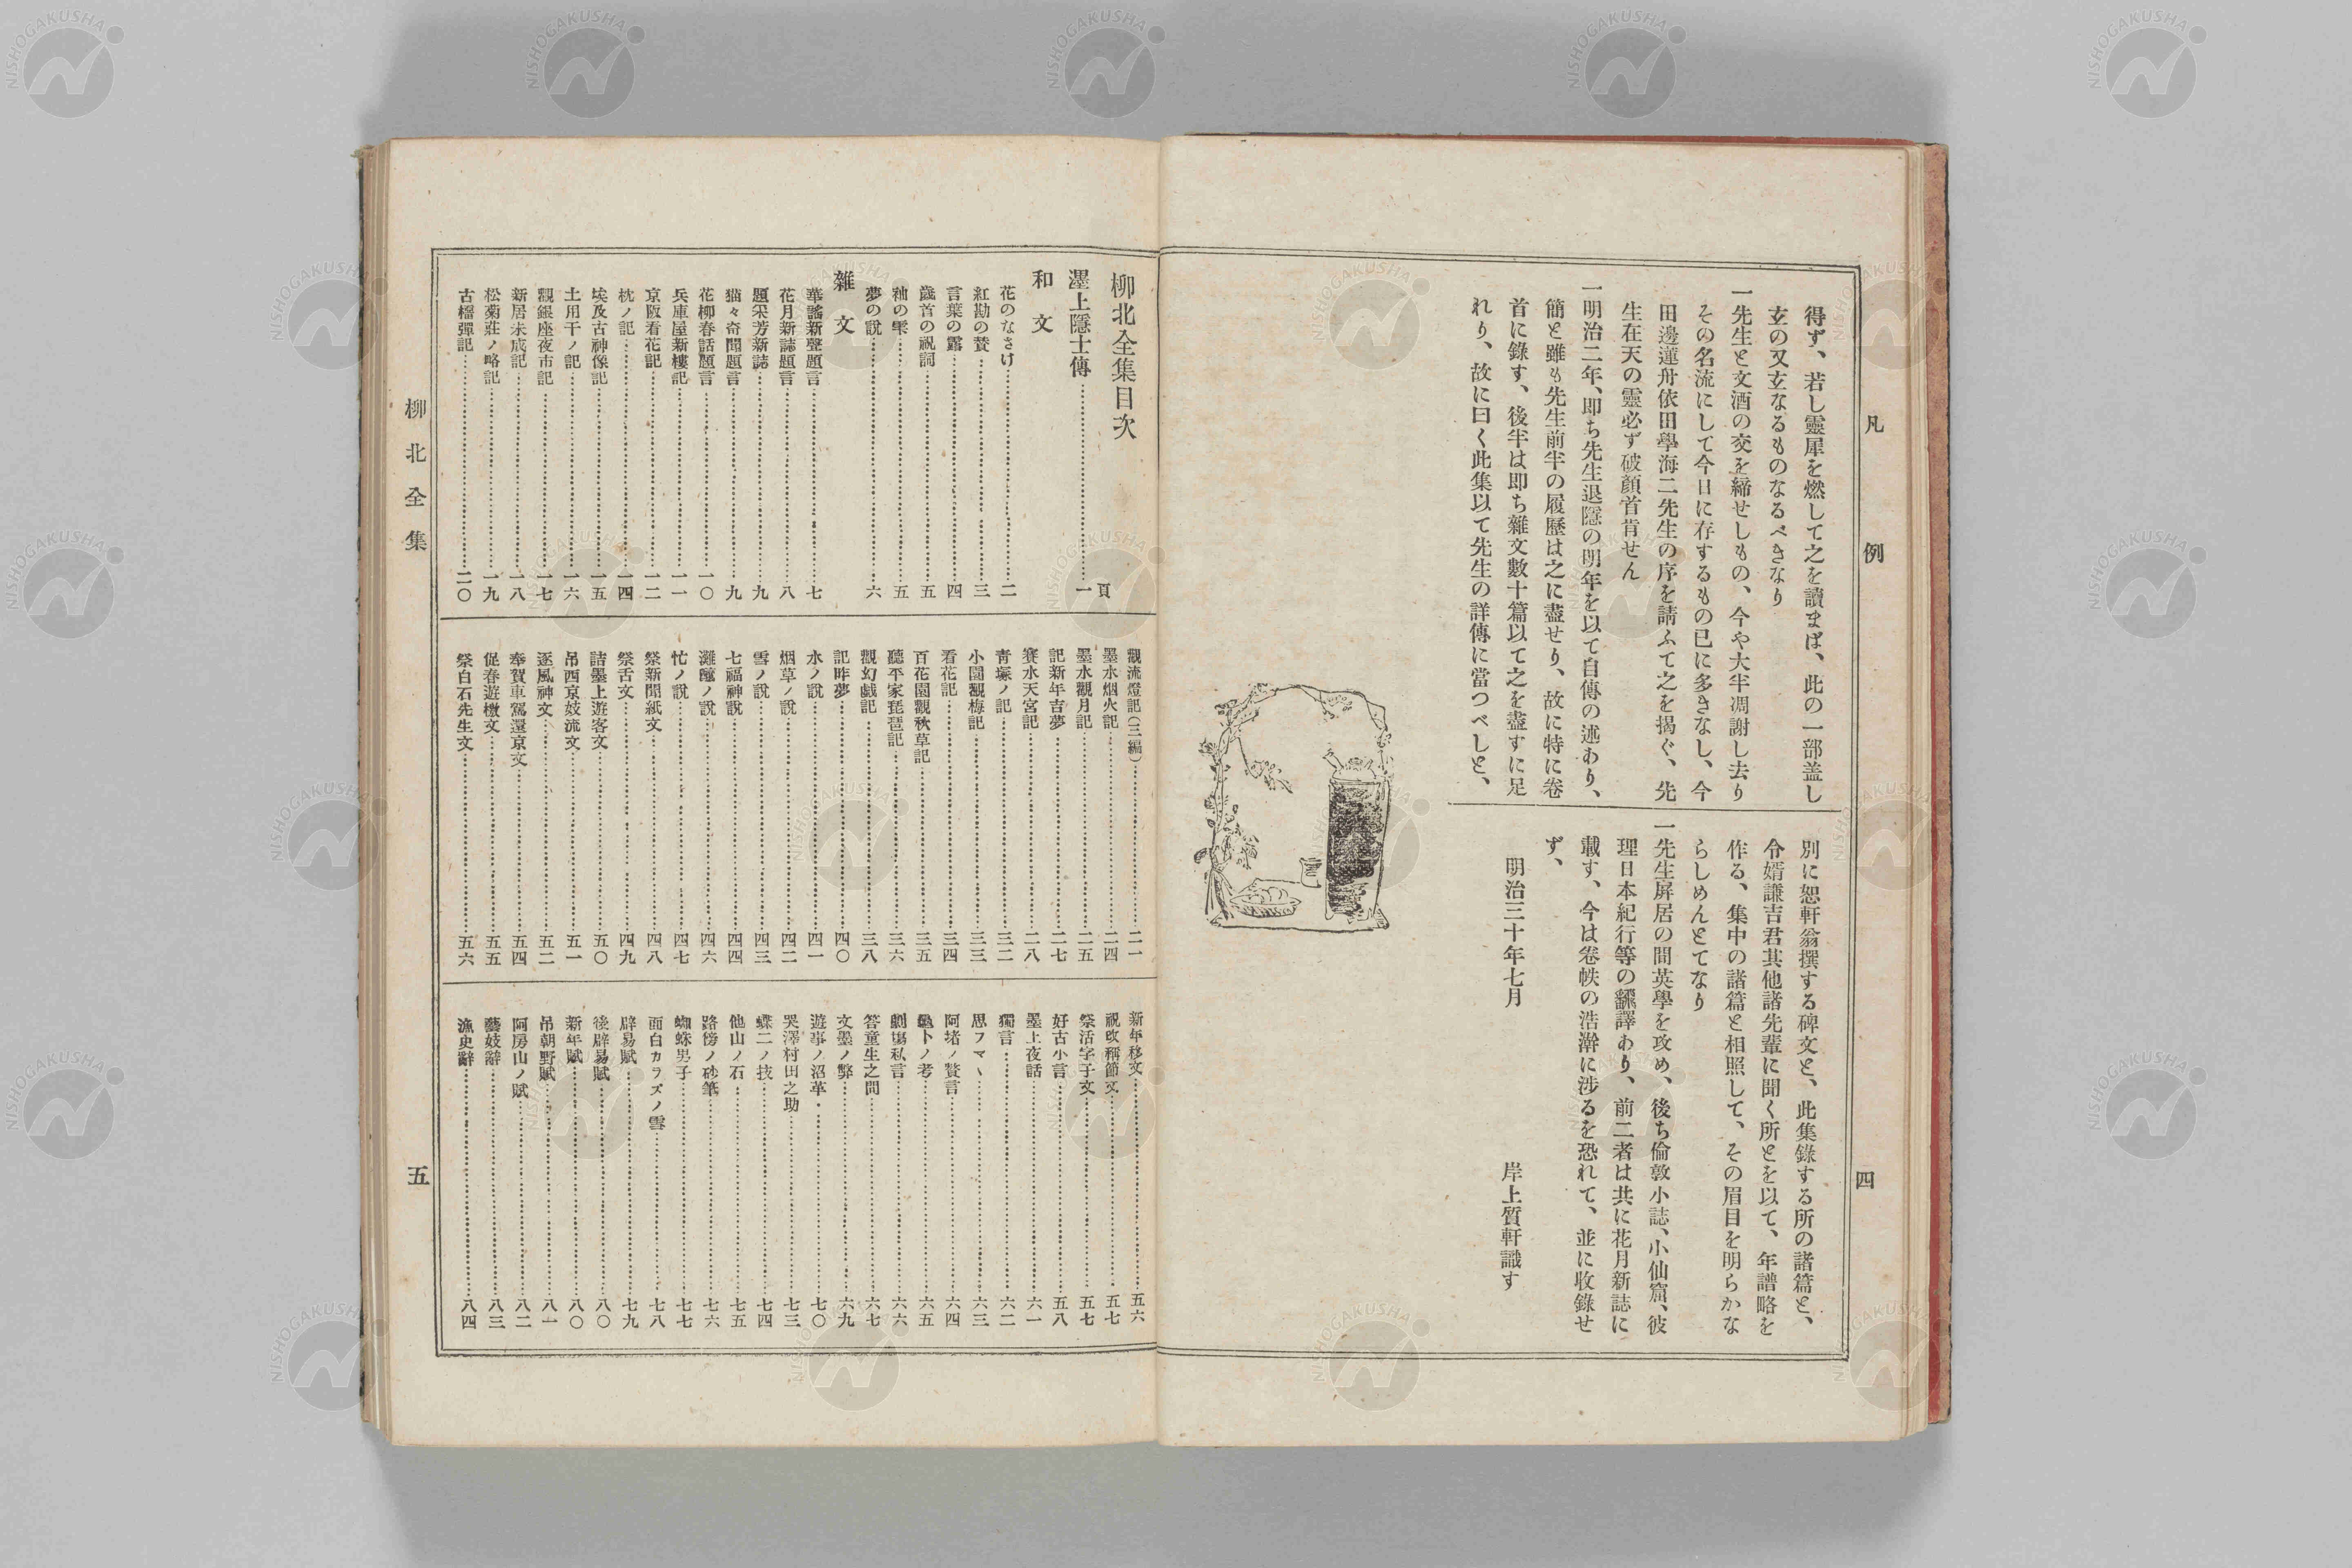 凡例
四
得ず、若し靈犀を燃して之を讀まば、此の一部盖し
玄の又玄なるものなるべきなり
一先生と文酒の交を締せしもの、今や大半凋謝し去り
その名流にして今日に存するもの已に多きなし、今
田邊蓮舟依田學海二先生の序を請ふて之を揭ぐ、先
生在天の靈必ず破顏首肯せん
一明治二年、即ち先生退隱の明年を以て自傳の述あり、
簡と雖も先生前半の履歷は之に盡せり、故に特に卷
首に錄す、後半は即ち雜文數十篇以て之を盡すに足
れり、故に曰く此集以て先生の詳傳に當つべしと、
別に恕軒翁撰する碑文と、此集錄する所の諸篇と、
令婿謙吉君其他諸先輩に聞く所とを以て、年譜略を
作る、集中の諸篇と相照して、その眉目を明らかな
らしめんとてなり
一先生屏居の間英學を攻め、後ち倫敦小誌、小仙窟、彼
理日本紀行等の飜譯あり、前二者は共に花月新誌に
載す、今は卷帙の浩澣に涉るを恐れて、並に收錄せ
ず、
明治三十年七月
岸上質軒識す
柳北全集目次
頁
濹上隱士傳……一
和文
花のなさけ……二
紅勘の賛……三
言葉の露……四
歲首の祝詞……五
秞の雫……五
夢の說……六
雜文
華謠新聲題言……七
花月新誌題言……八
題釆芳新誌……九
猫々奇聞題言……九
花柳春話題言……一〇
兵庫屋新樓記……一一
京阪看花記……一二
枕ノ記……一四
埃及古神像記……一五
土用干ノ記……一六
觀銀座夜市記……一七
新居未成記……一八
松菊莊ノ略記……一九
古榴彈記……二〇
觀流燈記(三編)……二一
墨水烟火記……二四
墨水觀月記……二五
記新年吉夢……二七
賽水天宮記……二八
靑塚ノ記……三二
小園觀梅記……三三
看花記……三四
百花園觀秋草記……三五
聽平家琵琶記……三六
觀幻戲記……三八
記昨夢……四〇
水ノ說……四一
烟草ノ說……四二
雪ノ說……四三
七福神說……四四
灘醪ノ說……四六
忙ノ說……四七
祭新聞紙文……四八
祭舌文……四九
誥墨上遊客文……五〇
吊西京妓流文……五一
逐風神文……五二
奉賀車駕還京文……五四
促春遊檄文……五五
祭白石先生文……五六
新年移文……五六
祝改稱節文……五七
祭活字子文……五七
好古小言……五八
墨上夜話……六一
獨言……六二
思フマヽ……六三
阿堵ノ贅言……六四
龜卜ノ考……六五
劇塲私言……六六
答童生之問……六七
文墨ノ弊……六九
遊事ノ沿革……七〇
哭澤村田之助……七三
蝶二ノ技……七四
他山ノ石……七五
路傍ノ砂礫……七六
蜘蛛男子……七七
面白カラズノ雪……七八
辟易賦……七九
後辟易賦……八〇
新年賦……八〇
吊朝野賦……八一
阿房山ノ賦……八二
藝妓辭……八三
漁史辭……八四
柳北全集
五